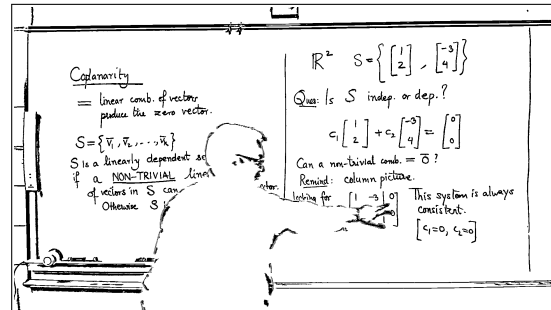 Coplanarity
= linear comb. of vectors
produce the zero vector.
S = {v̅₁, v̅₂, ..., v̅ₖ}
S is a linearly dependent se
if a NON-TRIVIAL line
of vectors in S can ector.
Otherwise S i
ℝ² S = { [1 2], [-3 4] }
Ques: Is S indep. or dep.?
c₁ [1 2] + c₂ [-3 4] = [0 0]
Can a non-trivial comb. = 0̅ ?
Remind: column picture.
looking for [1 -3 | 0 0] This system is always
consistent.
[c₁=0, c₂=0]